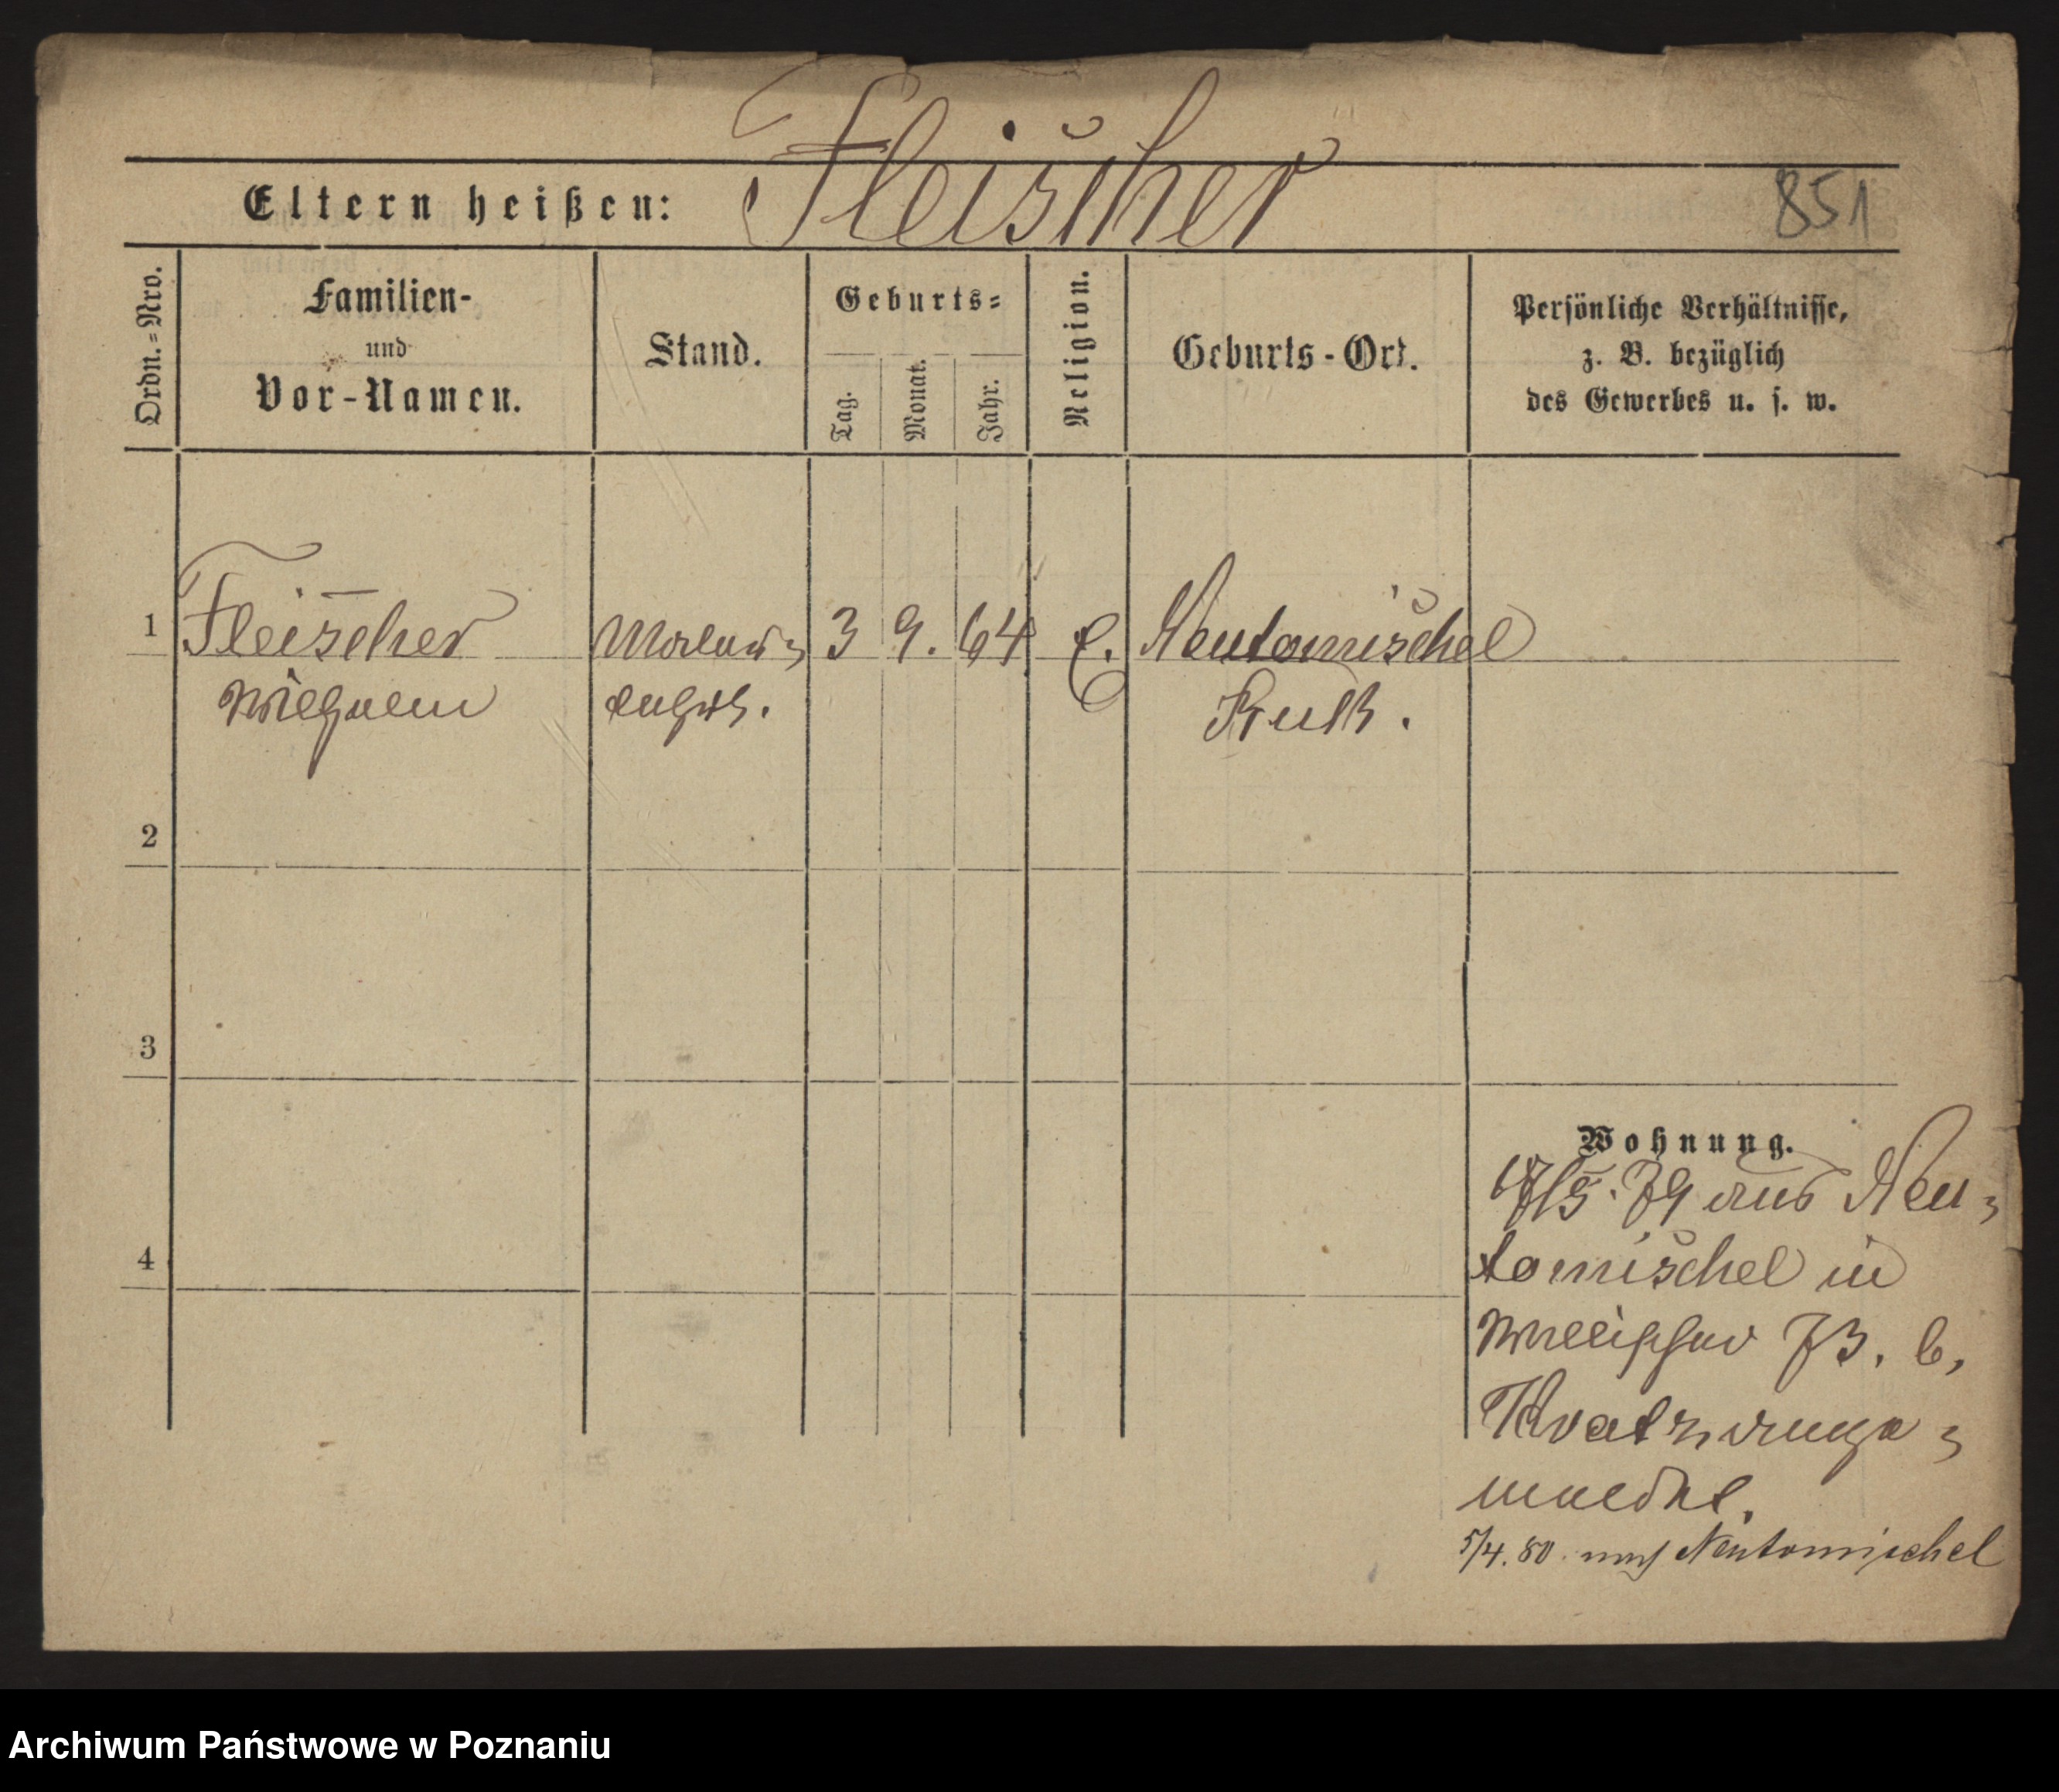 Fleischer
Eltern heißen:
851
Ordn.=Nro.
Familien-
und
Vor-Namen.
Stand.
Geburts=
Tag.
Monat.
Jahr.
Religion.
Geburts-Ort.
Persönliche Verhältnisse,
z. B. bezüglich
des Gewerbes u. s. w.
1 Fleischer Maler= 3 9. 64 E. Neutomischel
Wilhelm
Kreuß.
2
3
4
Wohnung.
79 aus Neu=
tomischel in
73. b,
5/4. 80. nach Neutomischel
Archiwum Państwowe w Poznaniu